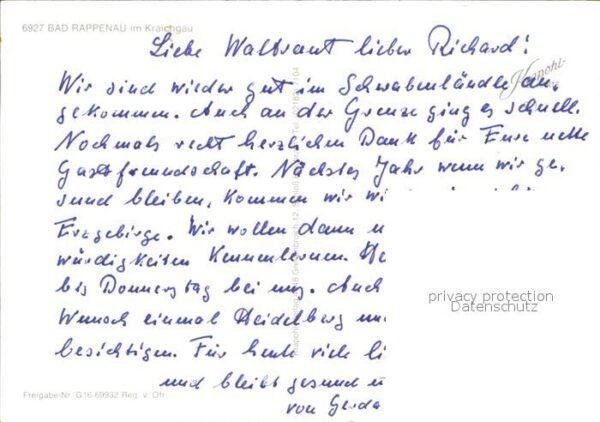 6927 BAD RAPPENAU im Kraichgau
Liebe Waltraut lieber Richard!
Wir sind wieder gut im Schwabenländle an-
gekommen. Auch an der Grenze ging es schnell.
Nochmals recht herzlichen Dank für Eure nette
Gastfreundschaft. Nächstes Jahr wenn wir ge-
sund bleiben, kommen wir wi
Erzgebirge. Wir wollen dann
würdigkeiten Kennenlernen.
bis Donnerstag bei uns. Auch
Wunsch einmal Heidelberg
besichtigen. Für heute viele li
und bleibt gesund
von Gerda
privacy protection
Datenschutz
Freigabe-Nr. G16-69932 Reg. v. Ofr.